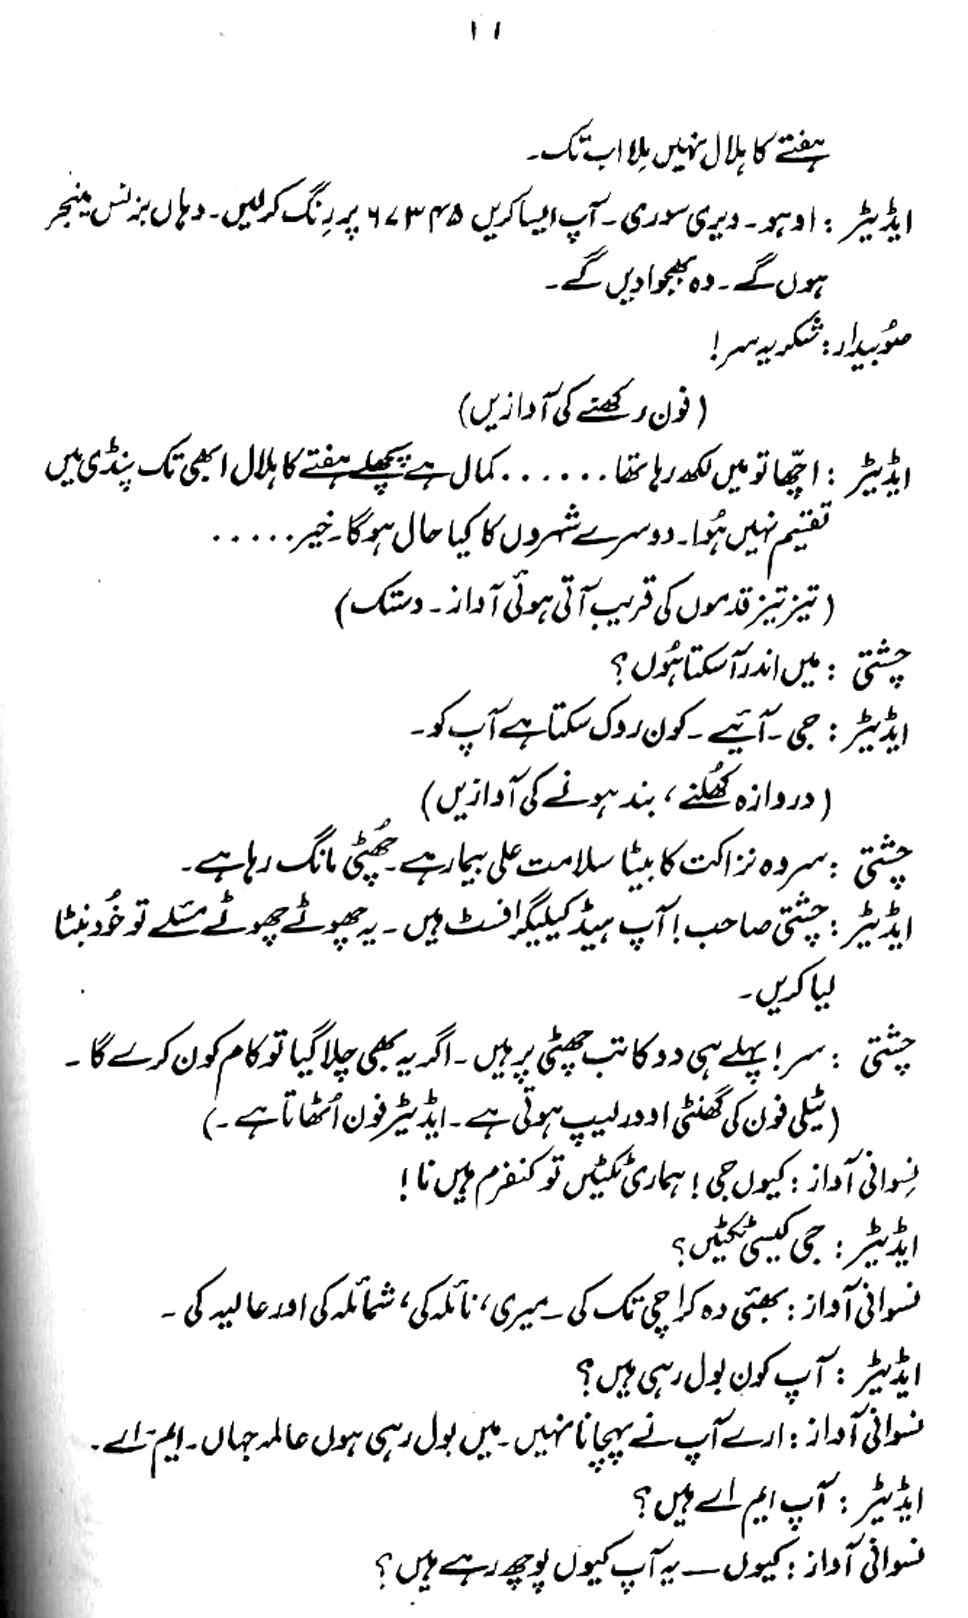 ۱۱
ہفتے کا ہلال نہیں مِلا اب تک۔
ایڈیٹر : اوہو۔ ویری سوری۔ آپ ایسا کریں ۶۷۳۴۵ پر رِنگ کرلیں۔ وہاں بزنس مینجر
ہوں گے۔ وہ بھجوا دیں گے۔
صوُبیدار : شکریہ سر!
(فون رکھنے کی آوازیں)
ایڈیٹر : اچّھا تو میں لکھ رہا تھا ...... کمال ہے پچھلے ہفتے کا ہلال ابھی تک پنڈی میں
تقسیم نہیں ہُوا۔ دوسرے شہروں کا کیا حال ہوگا۔ خیر .....
(تیز تیز قدموں کی قریب آتی ہوئی آواز۔ دستک)
چشتی : میں اندر آسکتا ہُوں؟
ایڈیٹر : جی۔ آئیے۔ کون روک سکتا ہے آپ کو۔
(دروازہ کُھلنے، بند ہونے کی آوازیں)
چشتی : سر وہ نزاکت کا بیٹا سلامت علی بیمار ہے۔ چُھٹی مانگ رہا ہے۔
ایڈیٹر : چشتی صاحب! آپ ہیڈ کیلیگرافسٹ ہیں۔ یہ چھوٹے چھوٹے مسئلے تو خُود نبٹا
لیا کریں۔
چشتی : سر! پہلے ہی دو کاتب چھٹی پر ہیں۔ اگر یہ بھی چلا گیا تو کام کون کرے گا۔
(ٹیلی فون کی گھنٹی اوورلیپ ہوتی ہے۔ ایڈیٹر فون اُٹھاتا ہے۔)
نِسوانی آواز : کیوں جی! ہماری ٹکٹیں تو کنفرم ہیں نا!
ایڈیٹر : جی کیسی ٹکٹیں؟
نسوانی آواز : بھئی وہ کراچی تک کی۔ میری، نائلہ کی، شمائلہ کی اور عالیہ کی۔
ایڈیٹر : آپ کون بول رہی ہیں؟
نسوانی آواز : ارے آپ نے پہچانا نہیں۔ میں بول رہی ہوں عالمہ جہاں۔ ایم۔اے۔
ایڈیٹر : آپ ایم اے ہیں؟
نسوانی آواز : کیوں — یہ آپ کیوں پوچھ رہے ہیں؟